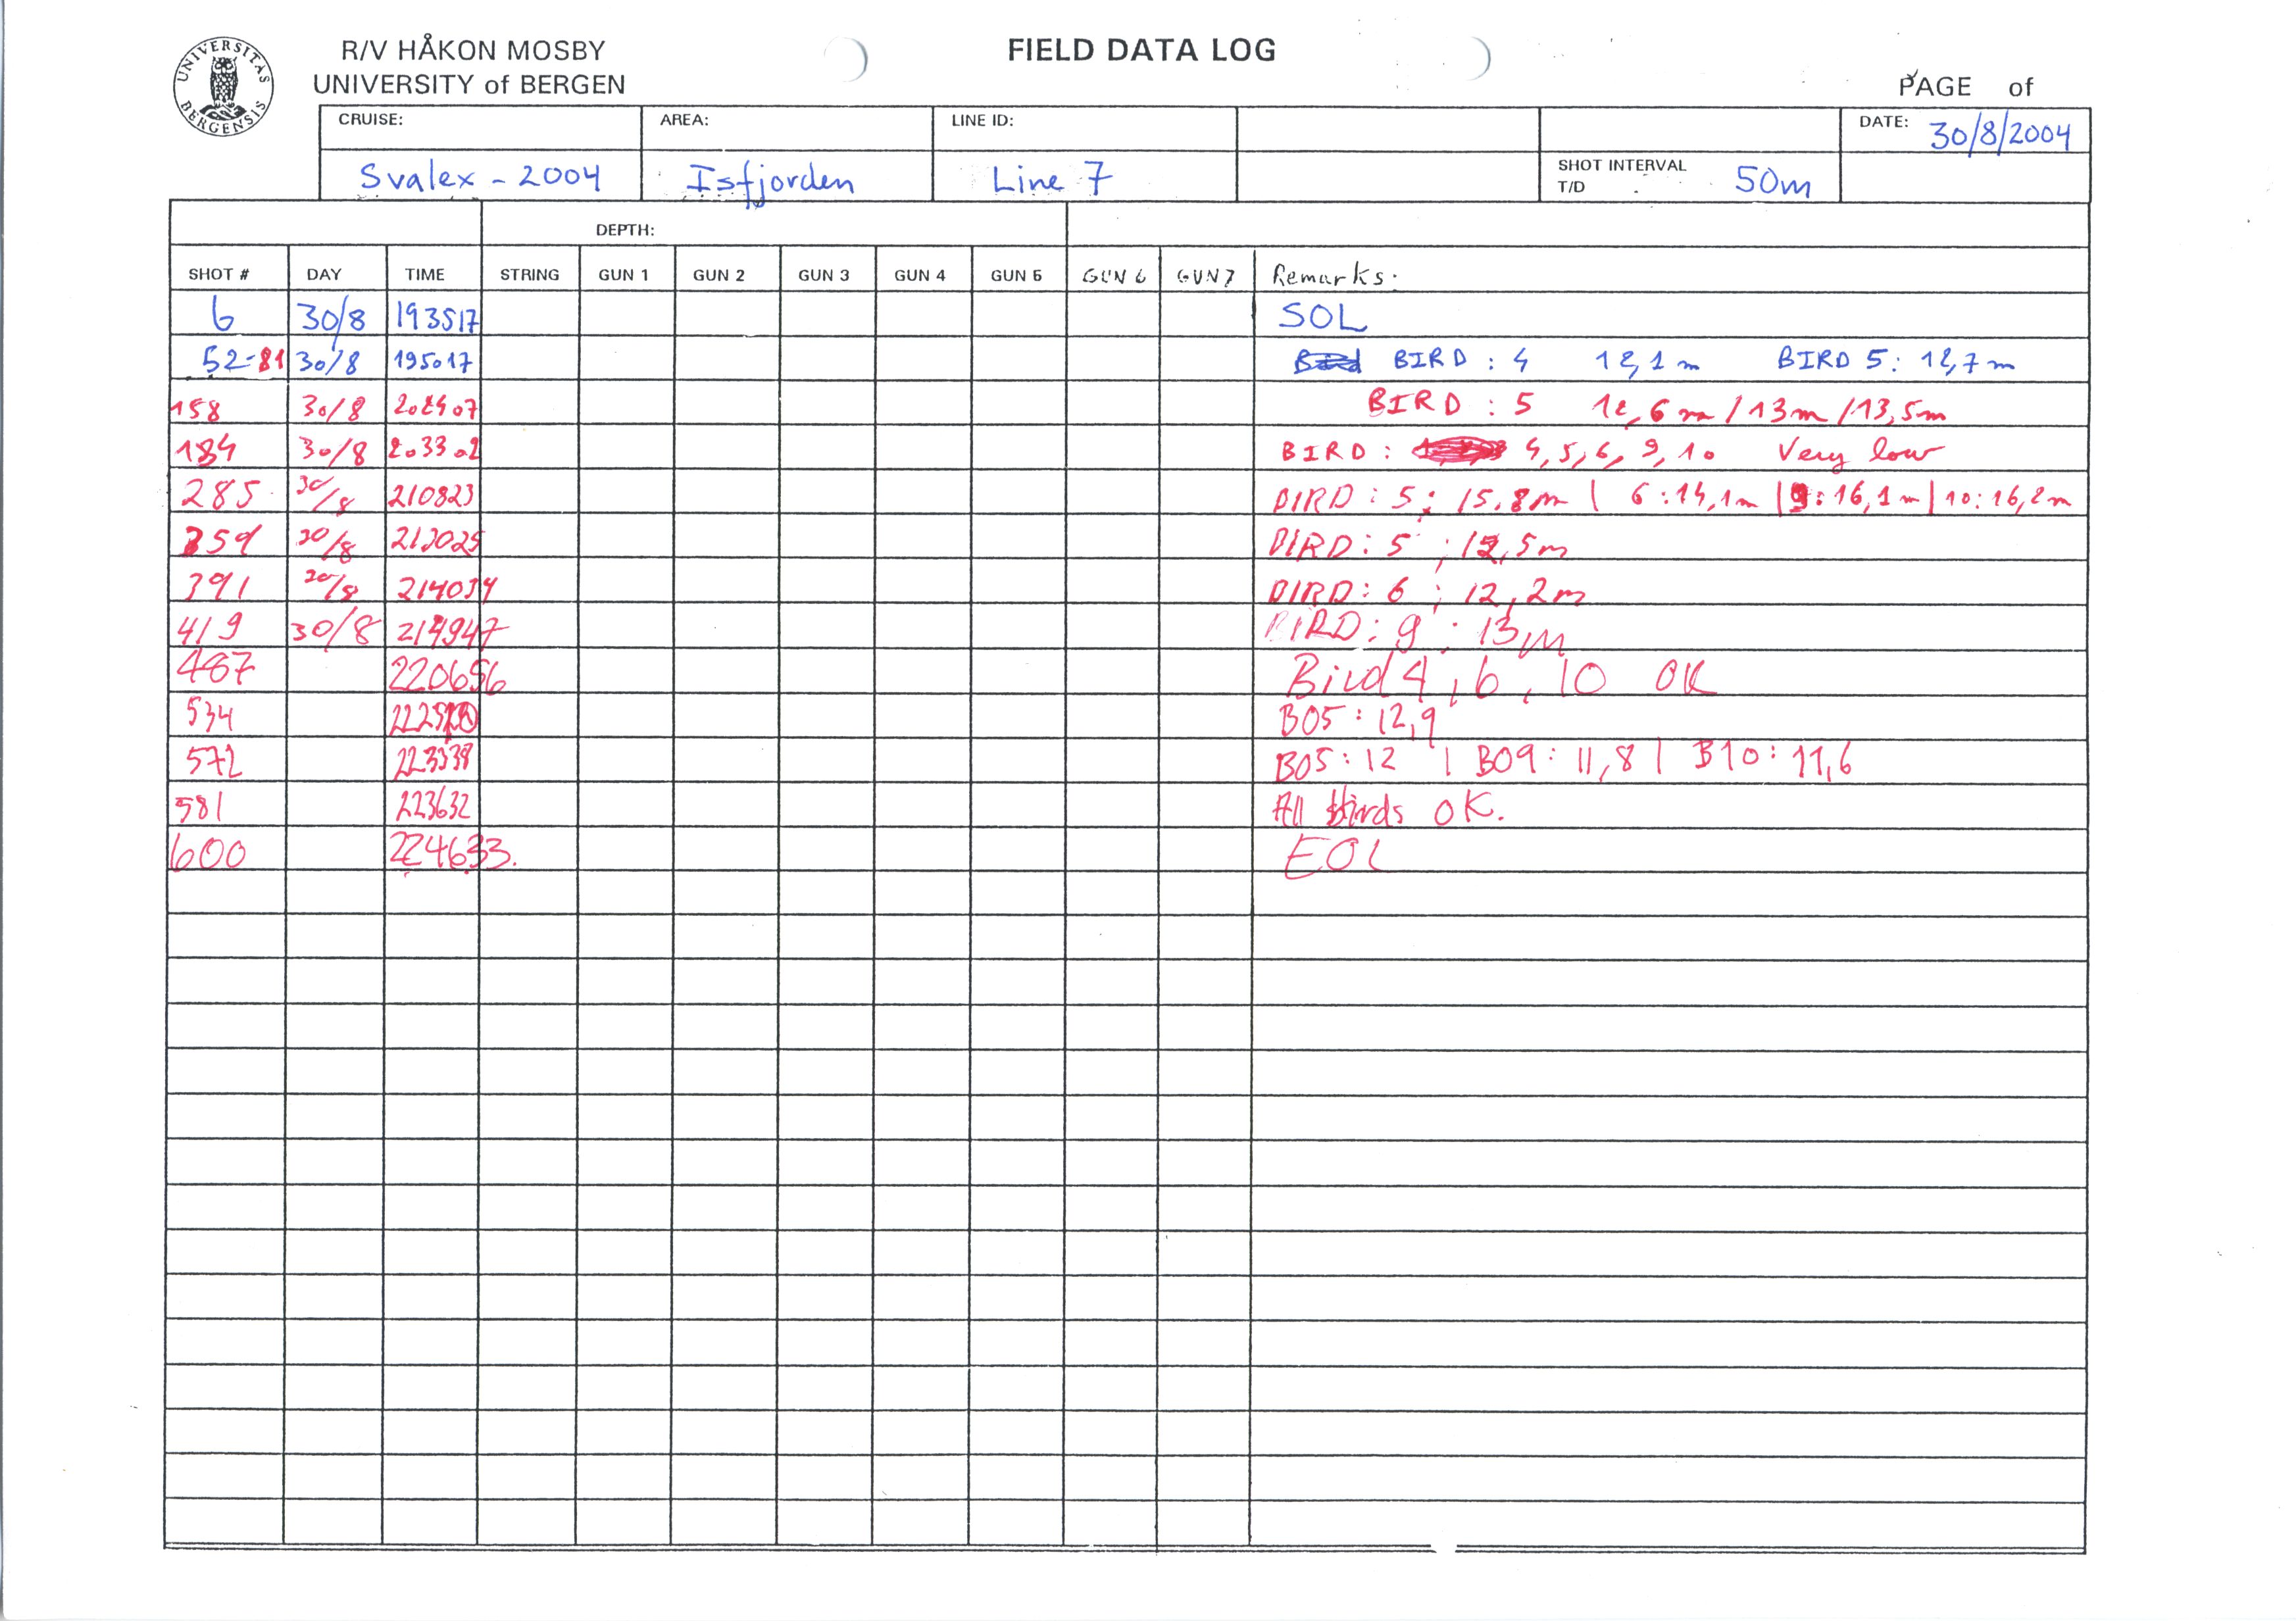 UNIVERSITAS BERGENSIS
R/V HÅKON MOSBY
UNIVERSITY of BERGEN
FIELD DATA LOG
PAGE of
CRUISE: AREA: LINE ID: DATE: 30/8/2004
Svalex - 2004 Isfjorden Line 7 SHOT INTERVAL T/D 50m
DEPTH:
SHOT # DAY TIME STRING GUN 1 GUN 2 GUN 3 GUN 4 GUN 5 GUN 6 GUN 7 Remarks:
6 30/8 193517 SOL
52-81 30/8 195017 BIRD : 4 12,1 m BIRD 5: 12,7 m
158 30/8 202407 BIRD : 5 12,6 m / 13m / 13,5m
184 30/8 203302 BIRD : 4, 5, 6, 9, 10 Very low
285 30/8 210823 BIRD : 5 : 15,8m | 6 : 14,1m | 9 : 16,1 m | 10 : 16,2m
359 30/8 BIRD : 5 : 12,5m
391 30/8 214034 BIRD : 6 : 12,2m
419 30/8 214947 BIRD : 9 : 13m
467 220656 Bird 4, 6, 10 OK
534 B05 : 12,9
572 223338 B05 : 12 | B09 : 11,8 | B10 : 11,6
581 223632 All birds OK.
600 224633. EOL